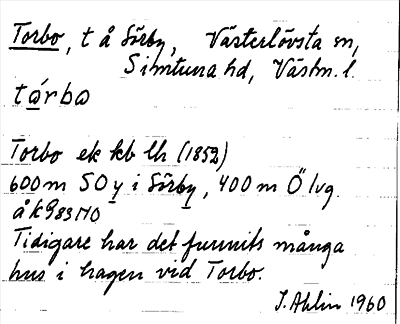 Torbo, t å Sörby, Västerlövsta sn,
Simtuna hd, Västm. l.
tárbo
Torbo ek kb lh (1852)
600 m SO y i Sörby, 400 m Ö lvg.
å k 983 NO
Tidigare har det funnits många
hus i hagen vid Torbo.
I. Ahlin 1960